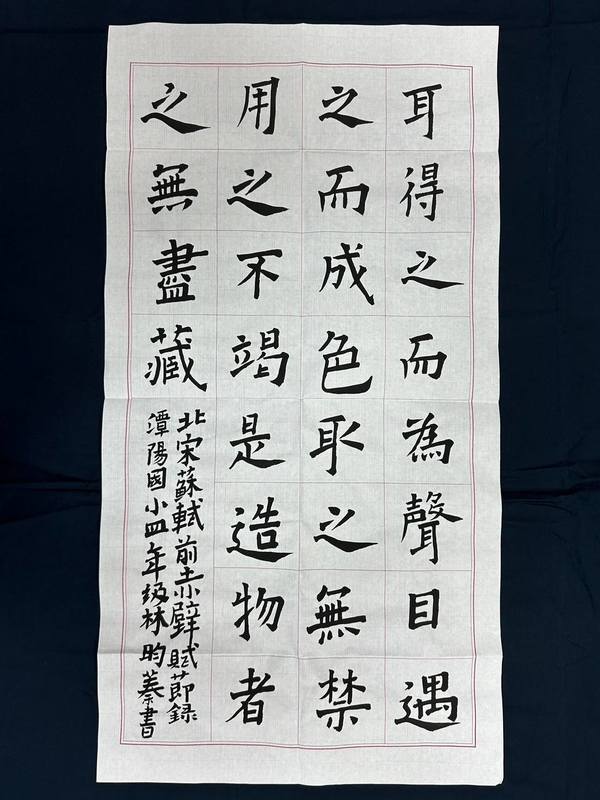 耳得之而為聲目遇
之而成色取之無禁
用之不竭是造物者
之無盡藏
北宋蘇軾前赤壁賦節録
潭陽國小四年级林昀蓁書